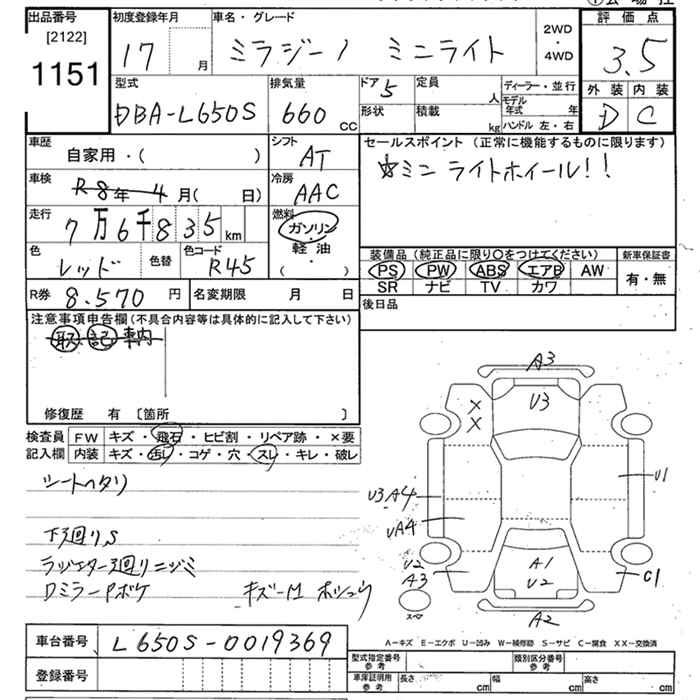 出品番号 初度登録年月 車名・グレード 評価点
[2122]
1151 17 月 ミラジーノ ミニライト 2WD・4WD 3.5
型式 排気量 ドア 5 定員 人 ディーラー・並行 外装 内装
DBA-L650S 660 CC 形状 積載 kg モデル年式 年 D C
ハンドル 左・右
車歴 シフト セールスポイント (正常に機能するものに限ります)
自家用・( ) AT ☆ミニライトホイール!!
車検 R8年4月( 日) 冷房 AAC
走行 7万6千835km 燃料 ガソリン・軽油・( )
色 レッド 色替 色コード R45
装備品 (純正品に限り〇をつけてください) 新車保証書
PS PW ABS エアB AW 有・無
SR ナビ TV カワ
R券 8.570 円 名変期限 月 日 後日品
注意事項申告欄(不具合内容等は具体的に記入して下さい)
取 記 車内
修復歴 有 〔箇所 〕
検査員 FW キズ・飛石・ヒビ割・リペア跡・×要
記入欄 内装 キズ・汚レ・コゲ・穴・スレ・キレ・破レ
シートヘタリ
下廻りS
ラジエター廻りニジミ
Dミラーアボケ キズ-M
A3
U3
×
×
U1
U3A4
UA4
U2 A1
A3 U2 C1
スペア
A2
A-キズ E-エクボ U-凹み W-補修跡 S-サビ C-腐食 XX-交換済
車台番号 L650S-0019369
型式指定番号 参考 類別区分番号 参考
登録番号 車庫証明用 参考 長さ cm 幅 cm 高さ cm